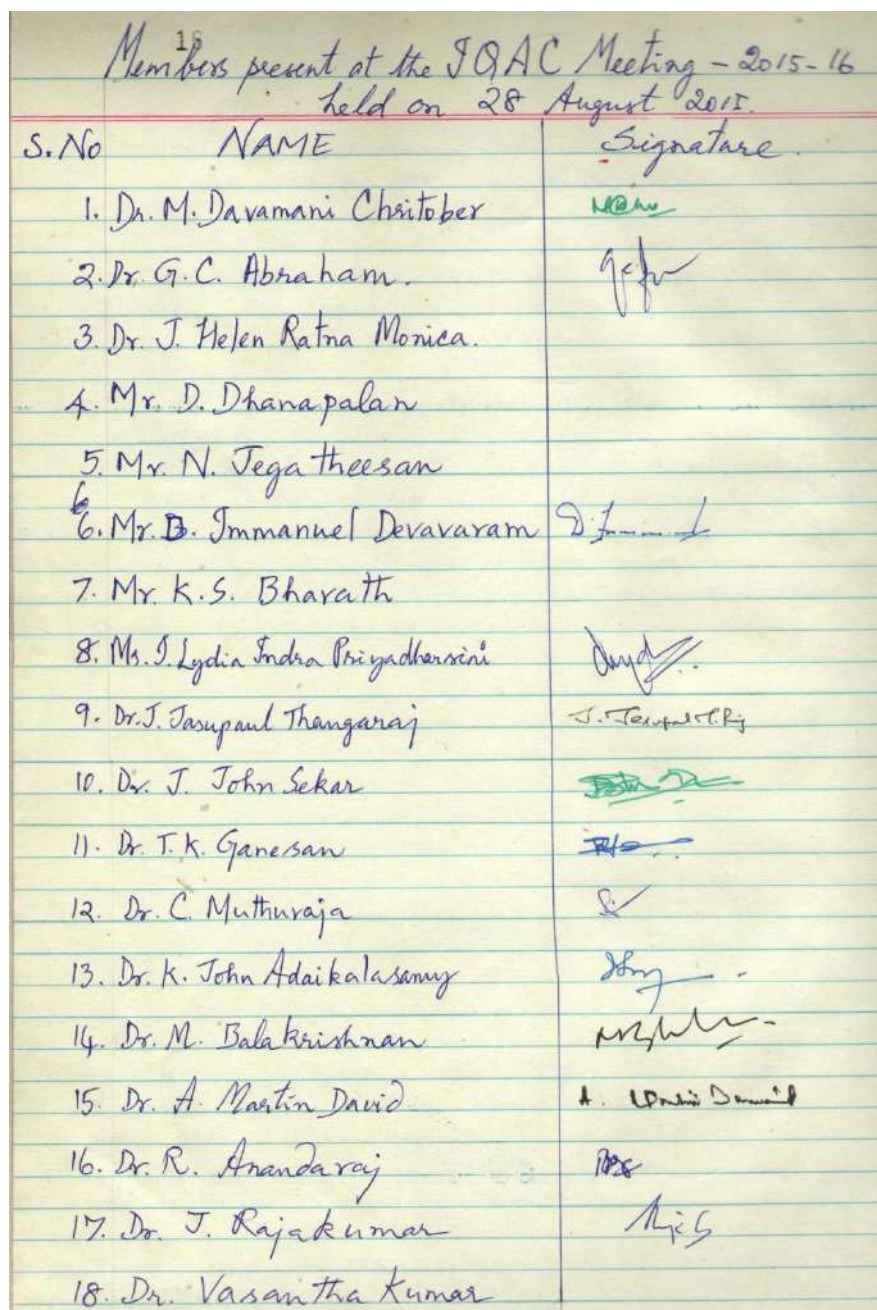 16
Members present at the IQAC Meeting - 2015-16
held on 28 August 2015.
S.No NAME Signature.
1. Dr. M. Davamani Chritober
2. Dr. G.C. Abraham.
3. Dr. J. Helen Ratna Monica.
4. Mr. D. Dhanapalan
5. Mr. N. Jegatheesan
6
6. Mr. D. Immanuel Devavaram D. Immanuel
7. Mr. K.S. Bharath
8. Ms. I. Lydia Indra Priyadharsini
9. Dr. J. Jasupaul Thangaraj
10. Dr. J. John Sekar
11. Dr. T.K. Ganesan
12. Dr. C. Muthuraja
13. Dr. K. John Adaikalasamy
14. Dr. M. Balakrishnan
15. Dr. A. Martin David A. Martin David
16. Dr. R. Anandaraj
17. Dr. J. Rajakumar
18. Dr. Vasantha Kumar